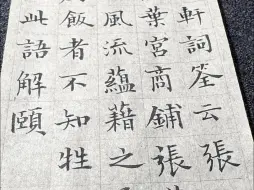 軒詞筌云張
葉宮商鋪張
風流蘊藉之
飯者不知牲
此語解頤